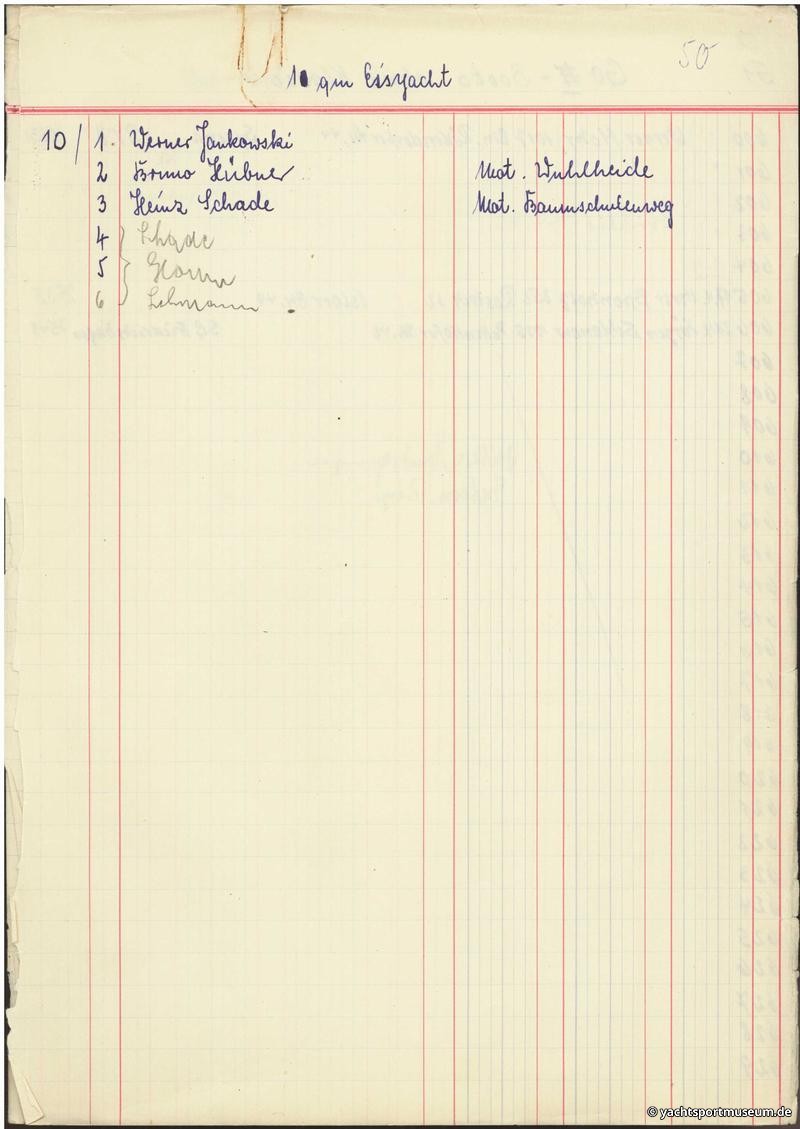 50
10 qm Eisyacht
10/ 1. Werner Jankowski
2 Bruno Hübner Mot. Wuhlheide
3 Heinz Schade Mot. Baumschulenweg
4 Schade
5
6 Lehmann
© yachtsportmuseum.de